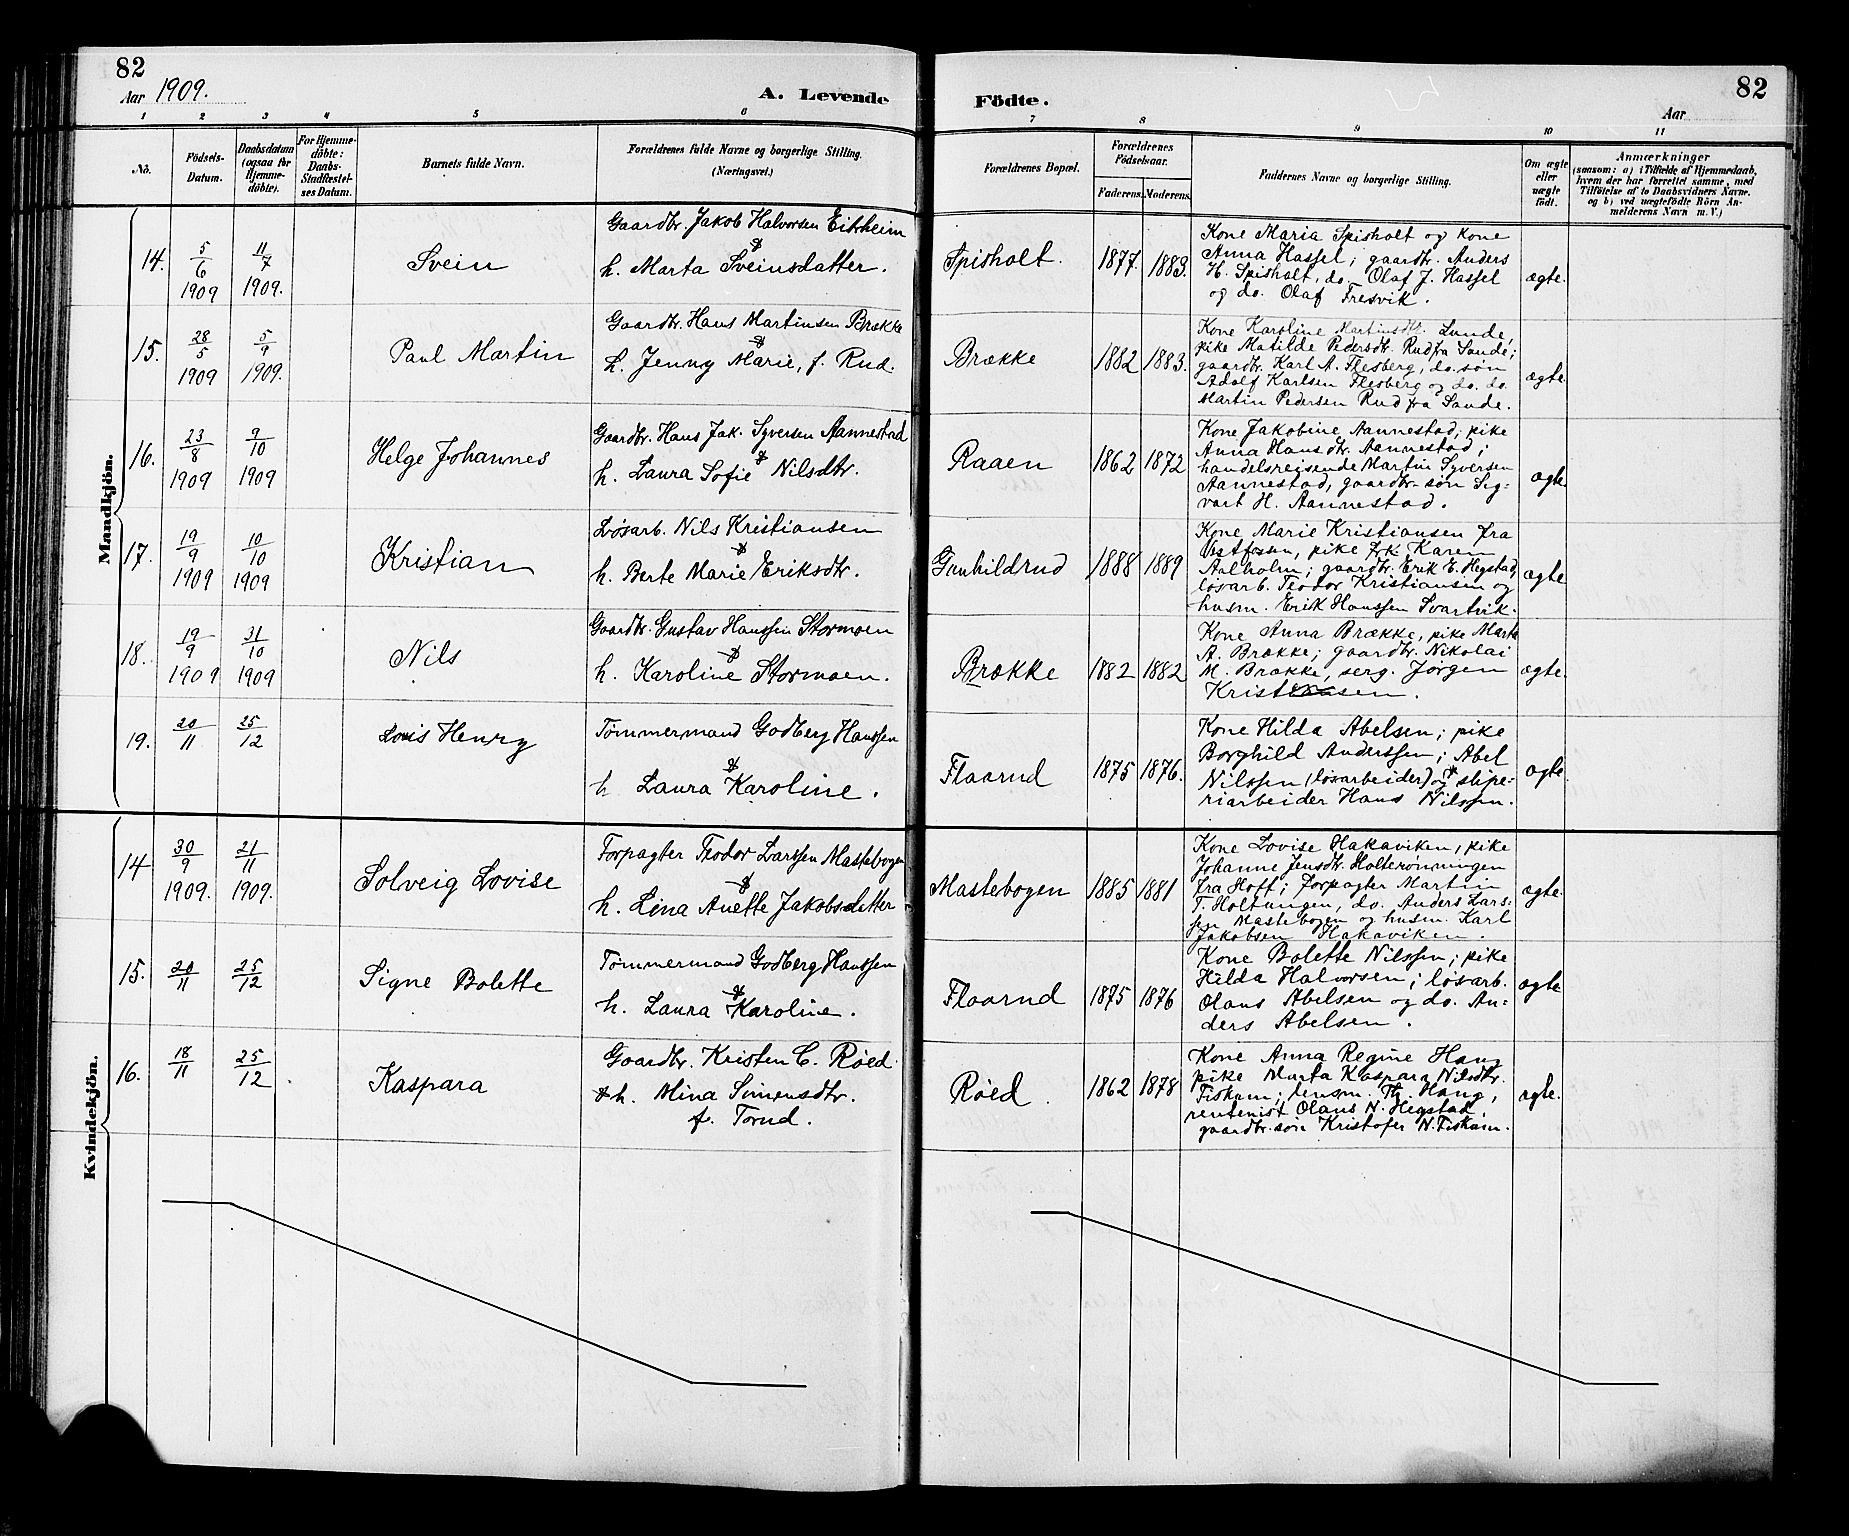 82
Aar 1909.
A. Levende
Födte.
82
Aar
1 2 3 4 5 6 7 8 9 10 11
No.
Födsels-
Datum.
Daabsdatum
(ogsaa for
Hjemme-
döbte).
For Hjemme-
döbte:
Daabs-
Stadfæstel-
ses Datum.
Barnets fulde Navn.
Forældrenes fulde Navne og borgerlige Stilling.
(Næringsvei.)
Forældrenes Bopæl.
Forældrenes
Födselsaar.
Faderens. Moderens.
Faddernes Navne og borgerlige Stilling.
Om ægte
eller
uægte
födt.
Anmærkninger
(saasom: a) i Tilfælde af Hjemmedaab,
hvem der har forrettet samme, med
Tilföielse af to Daabsvidners Navne.
og b) ved uægtefödte Börn An-
melderens Navn m. V.)
Mandkjön.
14.
5/6
1909
11/7
1909.
Svein
Gaardbr. Jakob Halvorsen Eikheim
&
h. Marta Sveinsdatter.
Spisholt.
1877. 1883.
Kone Maria Spisholt og kone
Anna Hassel; gaardbr. Anders
H. Spisholt, do. Olaf J. Hassel
og do. Olaf Fresvik.
ægte.
15.
28/5
1909
5/9
1909.
Paul Martin
Gaardbr. Hans Martinsen Brække
&
h. Jenny Marie, f. Rud.
Brække
1882 1883.
Kone Karoline Martinsdtr. Lunde,
pike Matilde Pedersdtr. Rud fra Sande;
gaardbr. Karl A. Flesberg, do. søn
Adolf Karlsen Flesberg og do. do.
Martin Pedersen Rud fra Sande.
ægte.
16.
23/8
1909
9/10
1909
Helge Johannes
Gaardbr. Hans Jak. Syversen Aannestad
&
h. Laura Sofie Nilsdtr.
Raaen
1862 1872
Kone Jakobine Aannestad, pike
Anna Hansdtr. Aannestad;
handelsreisende Martin Syversen
Aannestad, gaardbr. søn Sig-
vart H. Aannestad.
ægte.
17.
19/9
1909
10/10
1909
Kristian
Løsarb. Nils Kristiansen
&
h. Berte Marie Eriksdtr.
Gunhildrud
1888 1889
Kone Marie Kristiansen fra
Vestfossen, pike frk. Karen
Aalholm; gaardbr. Erik E. Hegstad,
løsarb. Teodor Kristiansen og
husm. Erik Hanssen Svartvik.
ægte
18.
19/9
1909
31/10
1909
Nils
Gaardbr. Gustav Hanssen Stormoen
&
h. Karoline Stormoen.
Brække
1882 1882
Kone Anna Brække, pike Marta
A. Brække; gaardbr. Nikolai
M. Brække, serg. Jørgen
Kristensen.
ægte.
19.
20/11
25/12
Lovis Henry
Tømmermand Godberg Hanssen
&
h Laura Karoline.
Flaarud
1875 1876.
Kone Hilda Abelsen; pike
Borghild Anderssen; Abel
Nilssen (løsarbeider) og slipe-
riarbeider Hans Nilssen.
ægte
Kvindekjön.
14
30/9
1909.
21/11
1909.
Solveig Lovise
Forpagter Teodor Larssen Mastebogen
&
h. Lina Anette Jakobsdatter
Mastebogen
1885 1881
Kone Lovise Hakaviken, pike
Johanne Jensdtr. Holterønningen
fra Hoff; forpagter Martin
T. Holtungen, do. Anders Lars-
sen Mastebogen og husm. Karl
Jakobsen Hakaviken.
ægte.
15.
20/11
25/12
Signe Bolette
Tømmermand Godberg Hanssen
&
h. Laura Karoline.
Flaarud
1875 1876
Kone Bolette Nilssen; pike
Hilda Halvorsen; løsarb.
Olaus Abelsen og do. An-
ders Abelsen.
ægte
16.
18/11
25/12
Kaspara
Gaardbr. Kristen C. Røed.
& h. Mina Simensdtr.
f. Torud.
Røed.
1862 1878
Kone Anna Regine Haug
pike Marta Kaspara Nilsdtr.
Fiskum; lensm. Th. Haug,
rentenist Olaus N. Hegstad,
gaardbr. søn Kristofer N. Fiskum.
ægte.